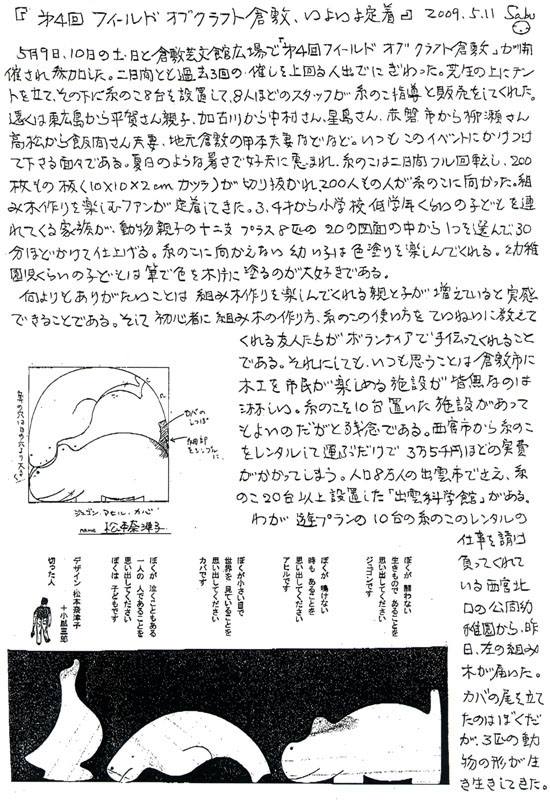 『第4回 フィールド オブ クラフト 倉敷、いよいよ定着』 2009.5.11 Sabu
5月9日、10日の土・日と倉敷芸文館広場で「第4回フィールド オブ クラフト 倉敷」が開
催され参加した。二日間とも過去3回の催しを上回る人出でにぎわった。芝生の上にテン
トを立て、その下に糸のこ8台を設置して、8人ほどのスタッフが糸のこ指導と販売をしてくれた。
遠くは東広島から平賀さん親子、加古川から中村さん、星島さん、赤磐市から柳瀬さん
高松から飯間さん夫妻、地元倉敷の甲本夫妻などなど。いつもこのイベントにかけつけ
て下さる面々である。夏日のような暑さで好天に恵まれ、糸のこは二日間フル回転し、200
枚もの板(10×10×2cm カツラ)が切り抜かれ200人もの人が糸のこに向かった。組
み木作りを楽しむファンが定着してきた。3、4才から小学校低学年くらいの子どもを連
れてくる家族が、動物親子の十二支プラス8匹の20の図面の中から1つを選んで30
分ほどかけて仕上げる。糸のこに向かえない幼い子は色塗りを楽しんでくれる。幼稚
園児くらいの子どもは筆で色を木片に塗るのが大好きである。
何よりもありがたいことは組み木作りを楽しんでくれる親と子が増えていると実感
できることである。そして初心者に組み木の作り方、糸のこの使い方をていねいに教えて
くれる友人たちがボランティアで手伝ってくれること
である。それにしても、いつも思うことは倉敷市に
木工を市民が楽しめる施設が皆無なのは
淋しい。糸のこを10台置いた施設があって
もよいのだがと残念である。西宮市から糸のこ
をレンタルして運ぶだけで3万5千円ほどの実費
がかかってしまう。人口8万人の出雲市でさえ、糸
のこ20台以上設置した「出雲科学館」がある。
わが遊プランの10台の糸のこのレンタルの
仕事を請け
負ってくれて
いる西宮北
口の公同幼
稚園から、昨
日、左の組み
木が届いた。
カバの尾を立て
たのはぼくだ
が、3匹の動
物の形が生
き生きしてきた。
カバの
しっぽ
細部
をシンプルに
ジュゴン・アヒル・カバ
name 松本奈津子
ぼくが 闘わない
生きもので あることを
思い出してください
ジュゴンです
ぼくが 鳴けない
時も あることを
思い出してください
アヒルです
ぼくが小さい目で
世界を 見ていることを
思い出してください
カバです
ぼくが 泣くこともある
一人の 人であることを
思い出してください
ぼくは 子どもです
デザイン 松本奈津子
＋小黒三郎
切った人